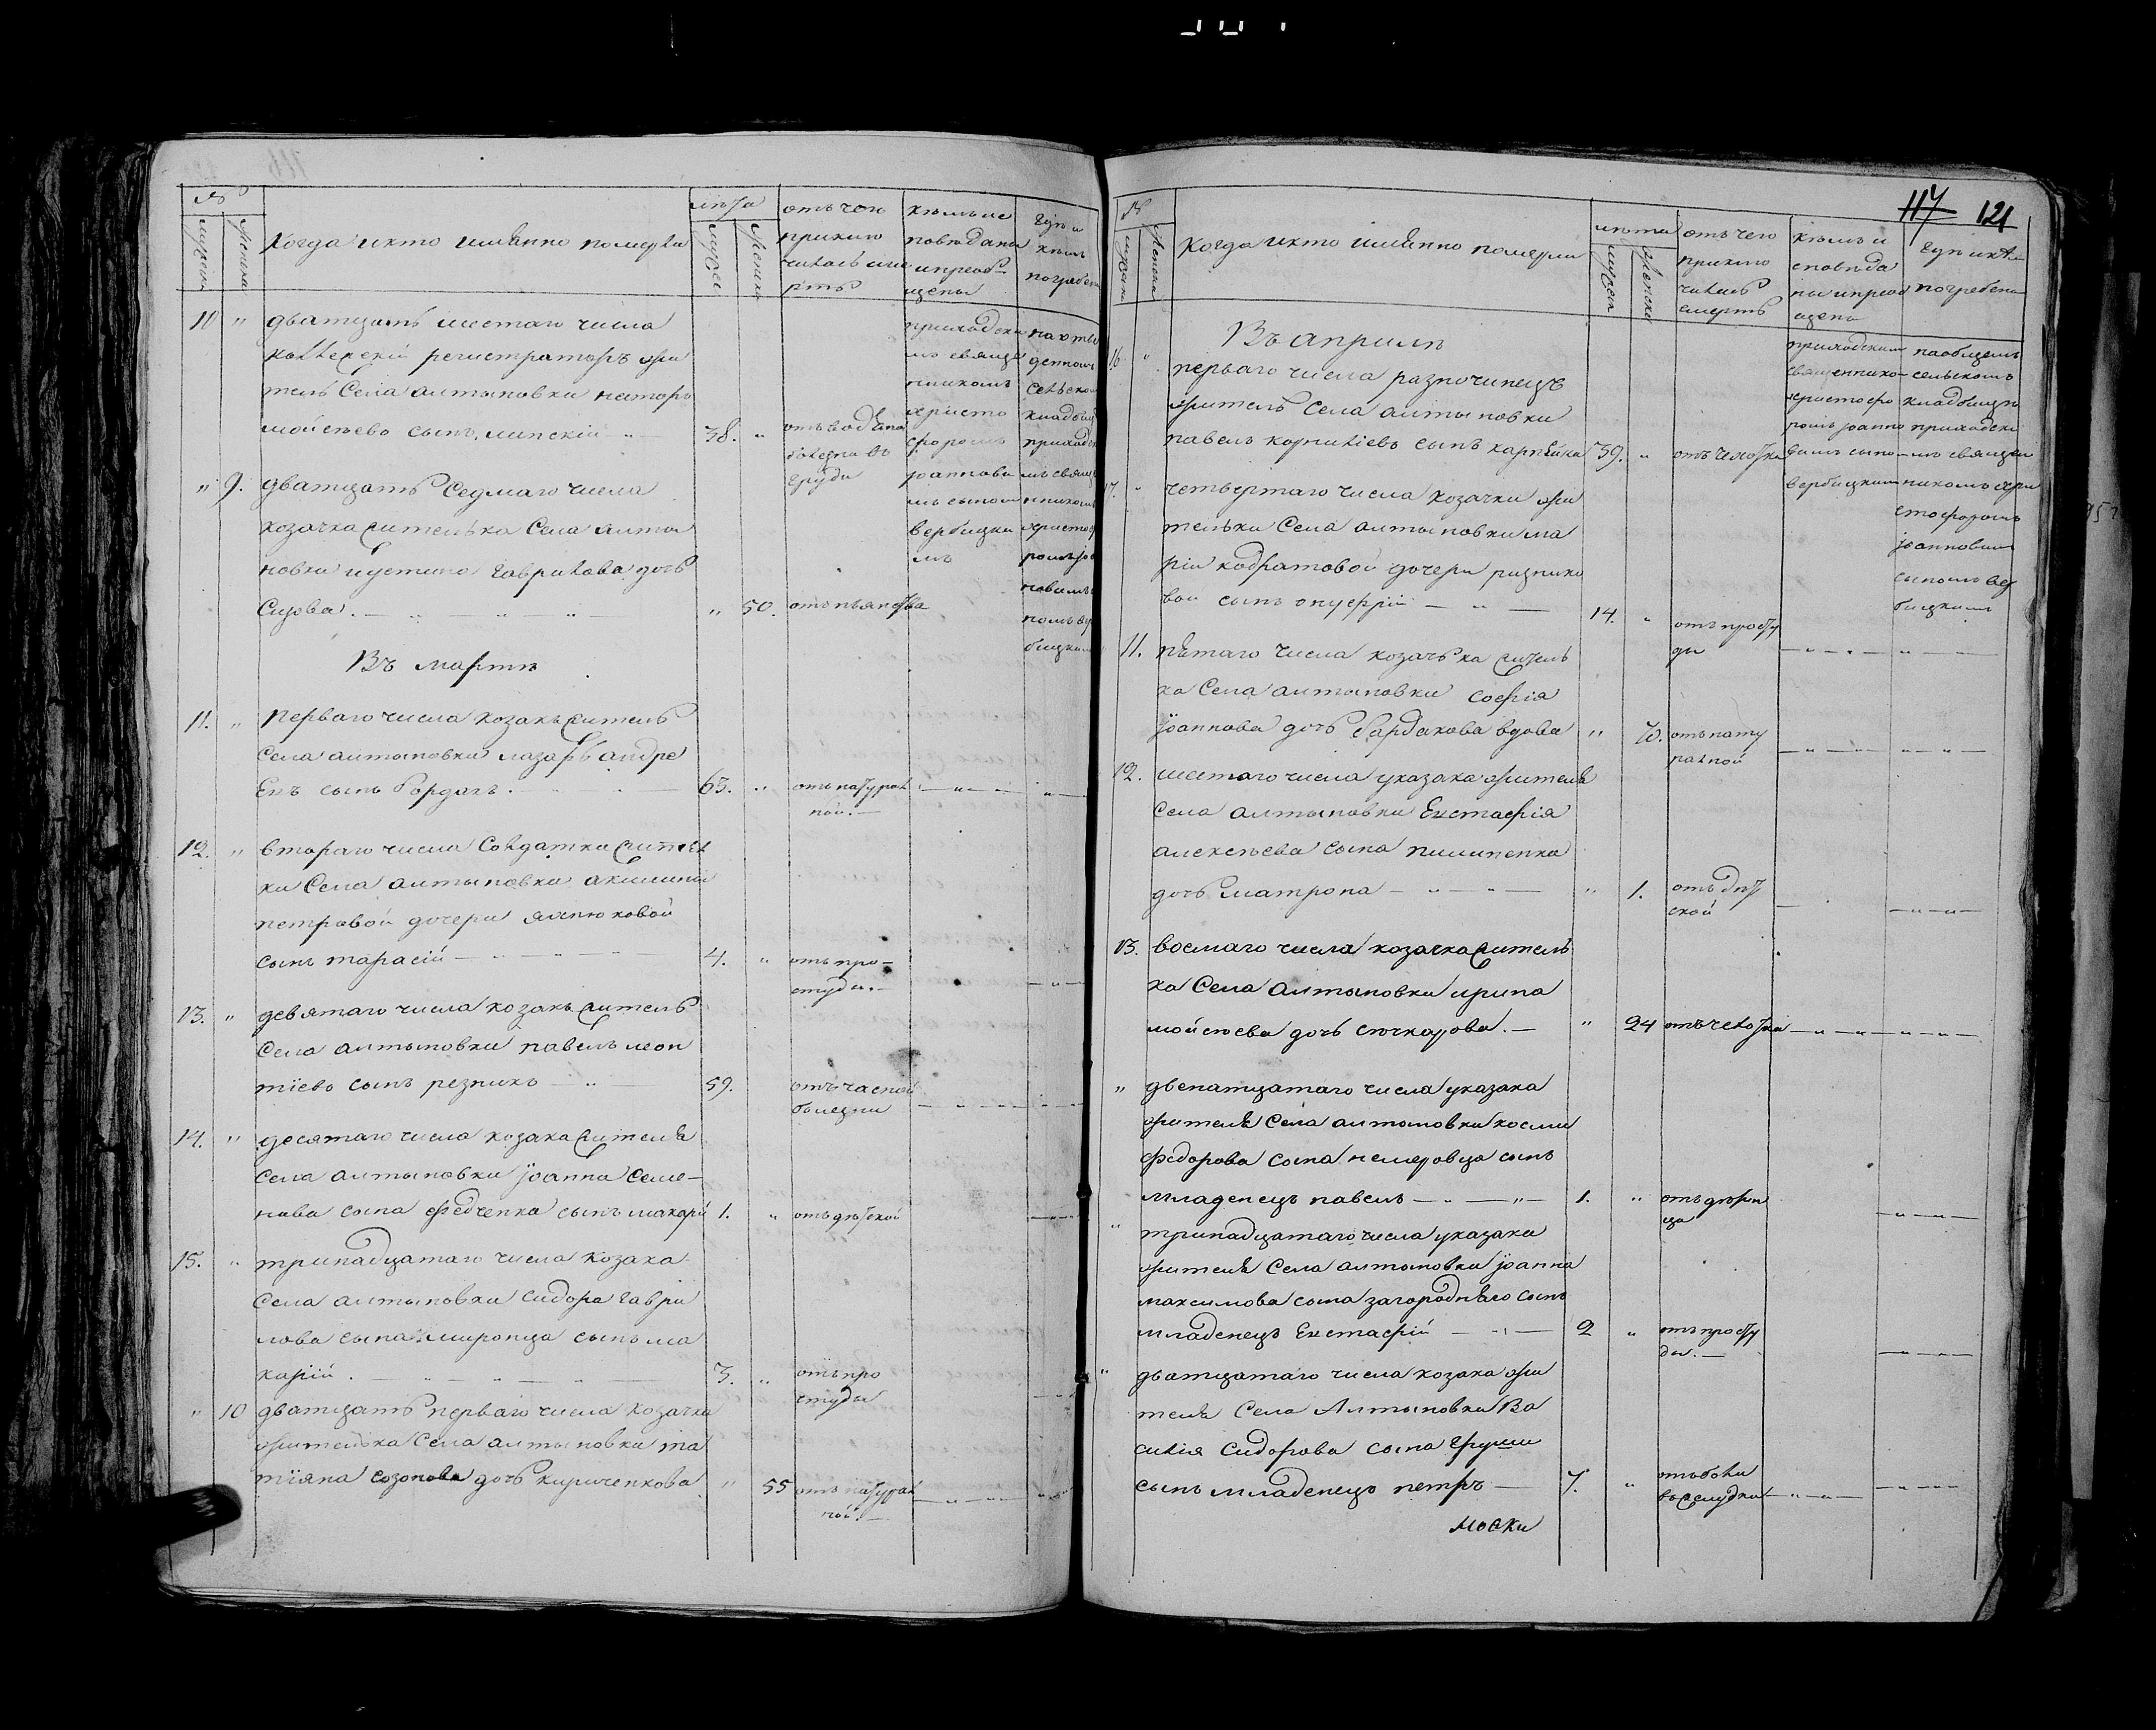 №
мужеска
женска
Когда и кто именно померли
лета
мужес
женска
отъ чего
приклю
чилась сме
рть
кемъ ис
поведаны
и приоб-
щены
где и
кемъ
погребены
10 " дватцать шестаго числа
коллежскій регистраторъ жи
тель Села алтыновки несторъ
мойсеевъ сынъ, минскій 38. "
отъ водяной
болезни въ
груди
приходски
мъ свяще
нникомъ
христо
форомъ
іоаннови
мъ сыном
вербицки
мъ
на отве
денномъ
сельском
кладбищ
приходск
мъ свяще
нникомъ
христоф
ромъ іоа
новымъ
номъ вер
бицким
" 9. дватцать Седмаго числа
козачка жителька Села алты
новки иустина гаврилова дочь
" 50. отъ пьянства
Въ марте
11. " перваго числа козакъ житель
Села алтыновки лазарь андре
евъ сынъ бордакъ. 63. " отъ натурал
ной.
12. " втораго числа Солдатки жител
ки Села алтыновки акилины
петровой дочери
сынъ тарасій 4. " отъ про-
студы.
13. " девятаго числа козакъ житель
Села алтыновки павелъ леон
тіевъ сынъ резникъ 59. отъ часной
болезни
14. " десятаго числа козака жителя
Села алтыновки іоанна Семе-
нова сына федченка сынъ макарій 1. " отъ детской
15. " тринадцатаго числа козака
Села алтыновки сидора гаври
лова сына миронца сынъ ма
карій. 3. " отъ про
студы
" 10 дватцать перваго числа козачка
жителька Села алтыновки та
тіяна созонова дочь кириченкова " 55 отъ натурал
ной.
117 121
№
мужеска
женска
Когда и кто именно померли
лета
мужеска
женска
отъ чего
приклю
чилась
смерть
кемъ и
споведа
ны и приоб
щены
где и ке-
погребены
Въ апреле
16. " перваго числа разночинецъ
житель Села алтыновки
павелъ корнилиевъ сынъ карпенка 39. " отъ чехотки
приходским
священнико-
христофо
ромъ іоанно
вимъ сыно-
вербицкимъ
на общемъ
сельскомъ
кладбище
приходски
мъ священ
никомъ хри
стофоромъ
іоанновим
сыномъ вер
бицкимъ
17. " четвертаго числа козачки жи
тельки Села алтыновки ма
ріи кодратовой дочери резнико
вой сынъ онуфрій 14. " отъ просту
ды
11. пятаго числа козачька житель
ка Села алтыновки софія
іоаннова дочь бардакова вдова " 70. отъ нату
ралной
12. шестаго числа указака жителя
Села алтыновки Евстафія
алексеева сына пилипенка
дочь матрона " 1. отъ дет
ской
13. восмаго числа козачка житель
ка Села алтыновки ирина
мойсеева дочь сечкарова. " 24 отъ чехотки
" двенатцатаго числа указака
жителя Села алтыновки косми
федорова сына немеровца сынъ
младенецъ павелъ 1. "
" тринадцатаго числа указака
жителя Села алтыновки іоанна
максимова сына загороднаго сынъ
младенецъ Евстафій 2 " отъ просту
ды.
" дватцатаго числа козака жи
теля Села Алтыновки Ва
силія Сидорова сына груши
сынъ младенецъ петръ 7. " отъ боли
въ желудки